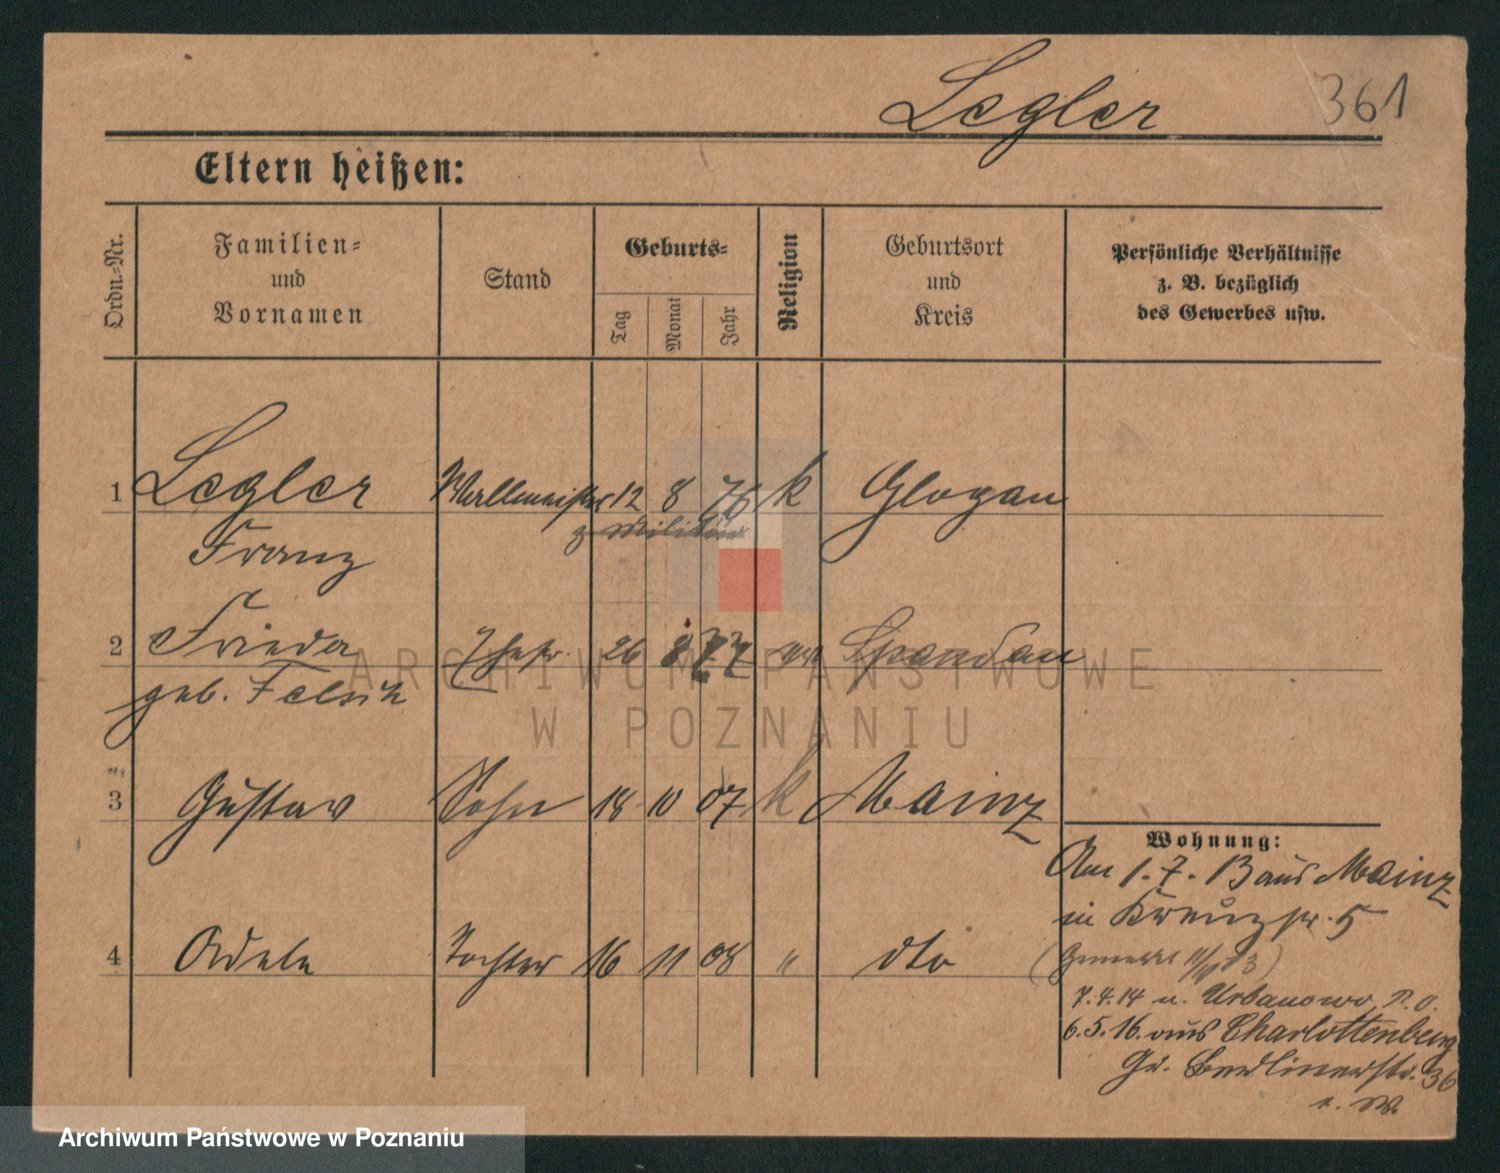 Legler 361
Eltern heißen:
Ordn.-Nr.
Familien-
und
Vornamen
Stand
Geburts-
Tag
Monat
Jahr
Religion
Geburtsort
und
Kreis
Persönliche Verhältnisse
z. B. bezüglich
des Gewerbes usw.
1 Legler Wallmeister 12 8 76 k Glogau
z. Militär
Franz
2 Frieda Ehefr. 26 8 77 Spandau
geb.
3 Gustav Sohn 18 10 07 k Mainz
Wohnung:
Am 1. 7. 13 aus Mainz
in Kreuzstr. 5
4 Adele Tochter 16 11 08 " dto
7.4.14 n. Urbanowo, P.O.
6.5.16. aus Charlottenberg
Gr. Berlinerstr. 36
ARCHIWUM PAŃSTWOWE
W POZNANIU
Archiwum Państwowe w Poznaniu